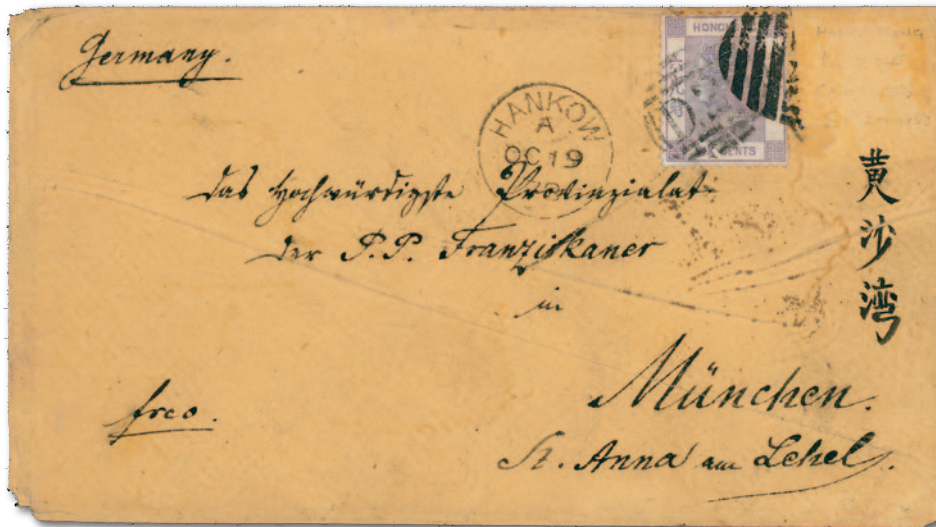 Germany.
HONG
CENTS
HANKOW
A
OC 19
Das Hochwürdigste Provinzialat
der P.P. Franziskaner
in
München.
St. Anna am Lehel.
frco.
黄沙湾